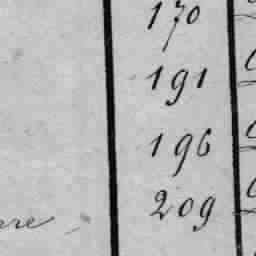 170
191
196
209